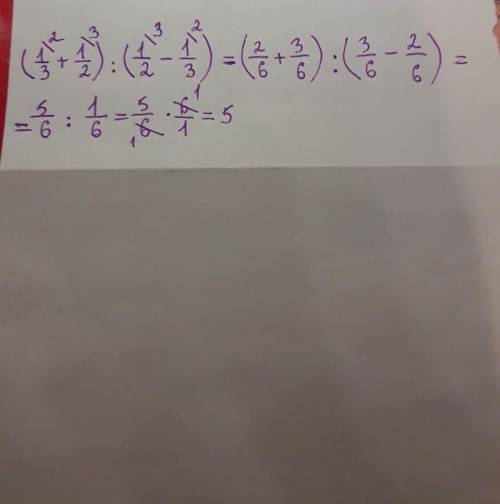 (1/3\² + 1/2\³) : (1/2\³ − 1/3\²) = (2/6 + 3/6) : (3/6 − 2/6) =
= 5/6 : 1/6 = 5/6 1 · 6/1 1 = 5